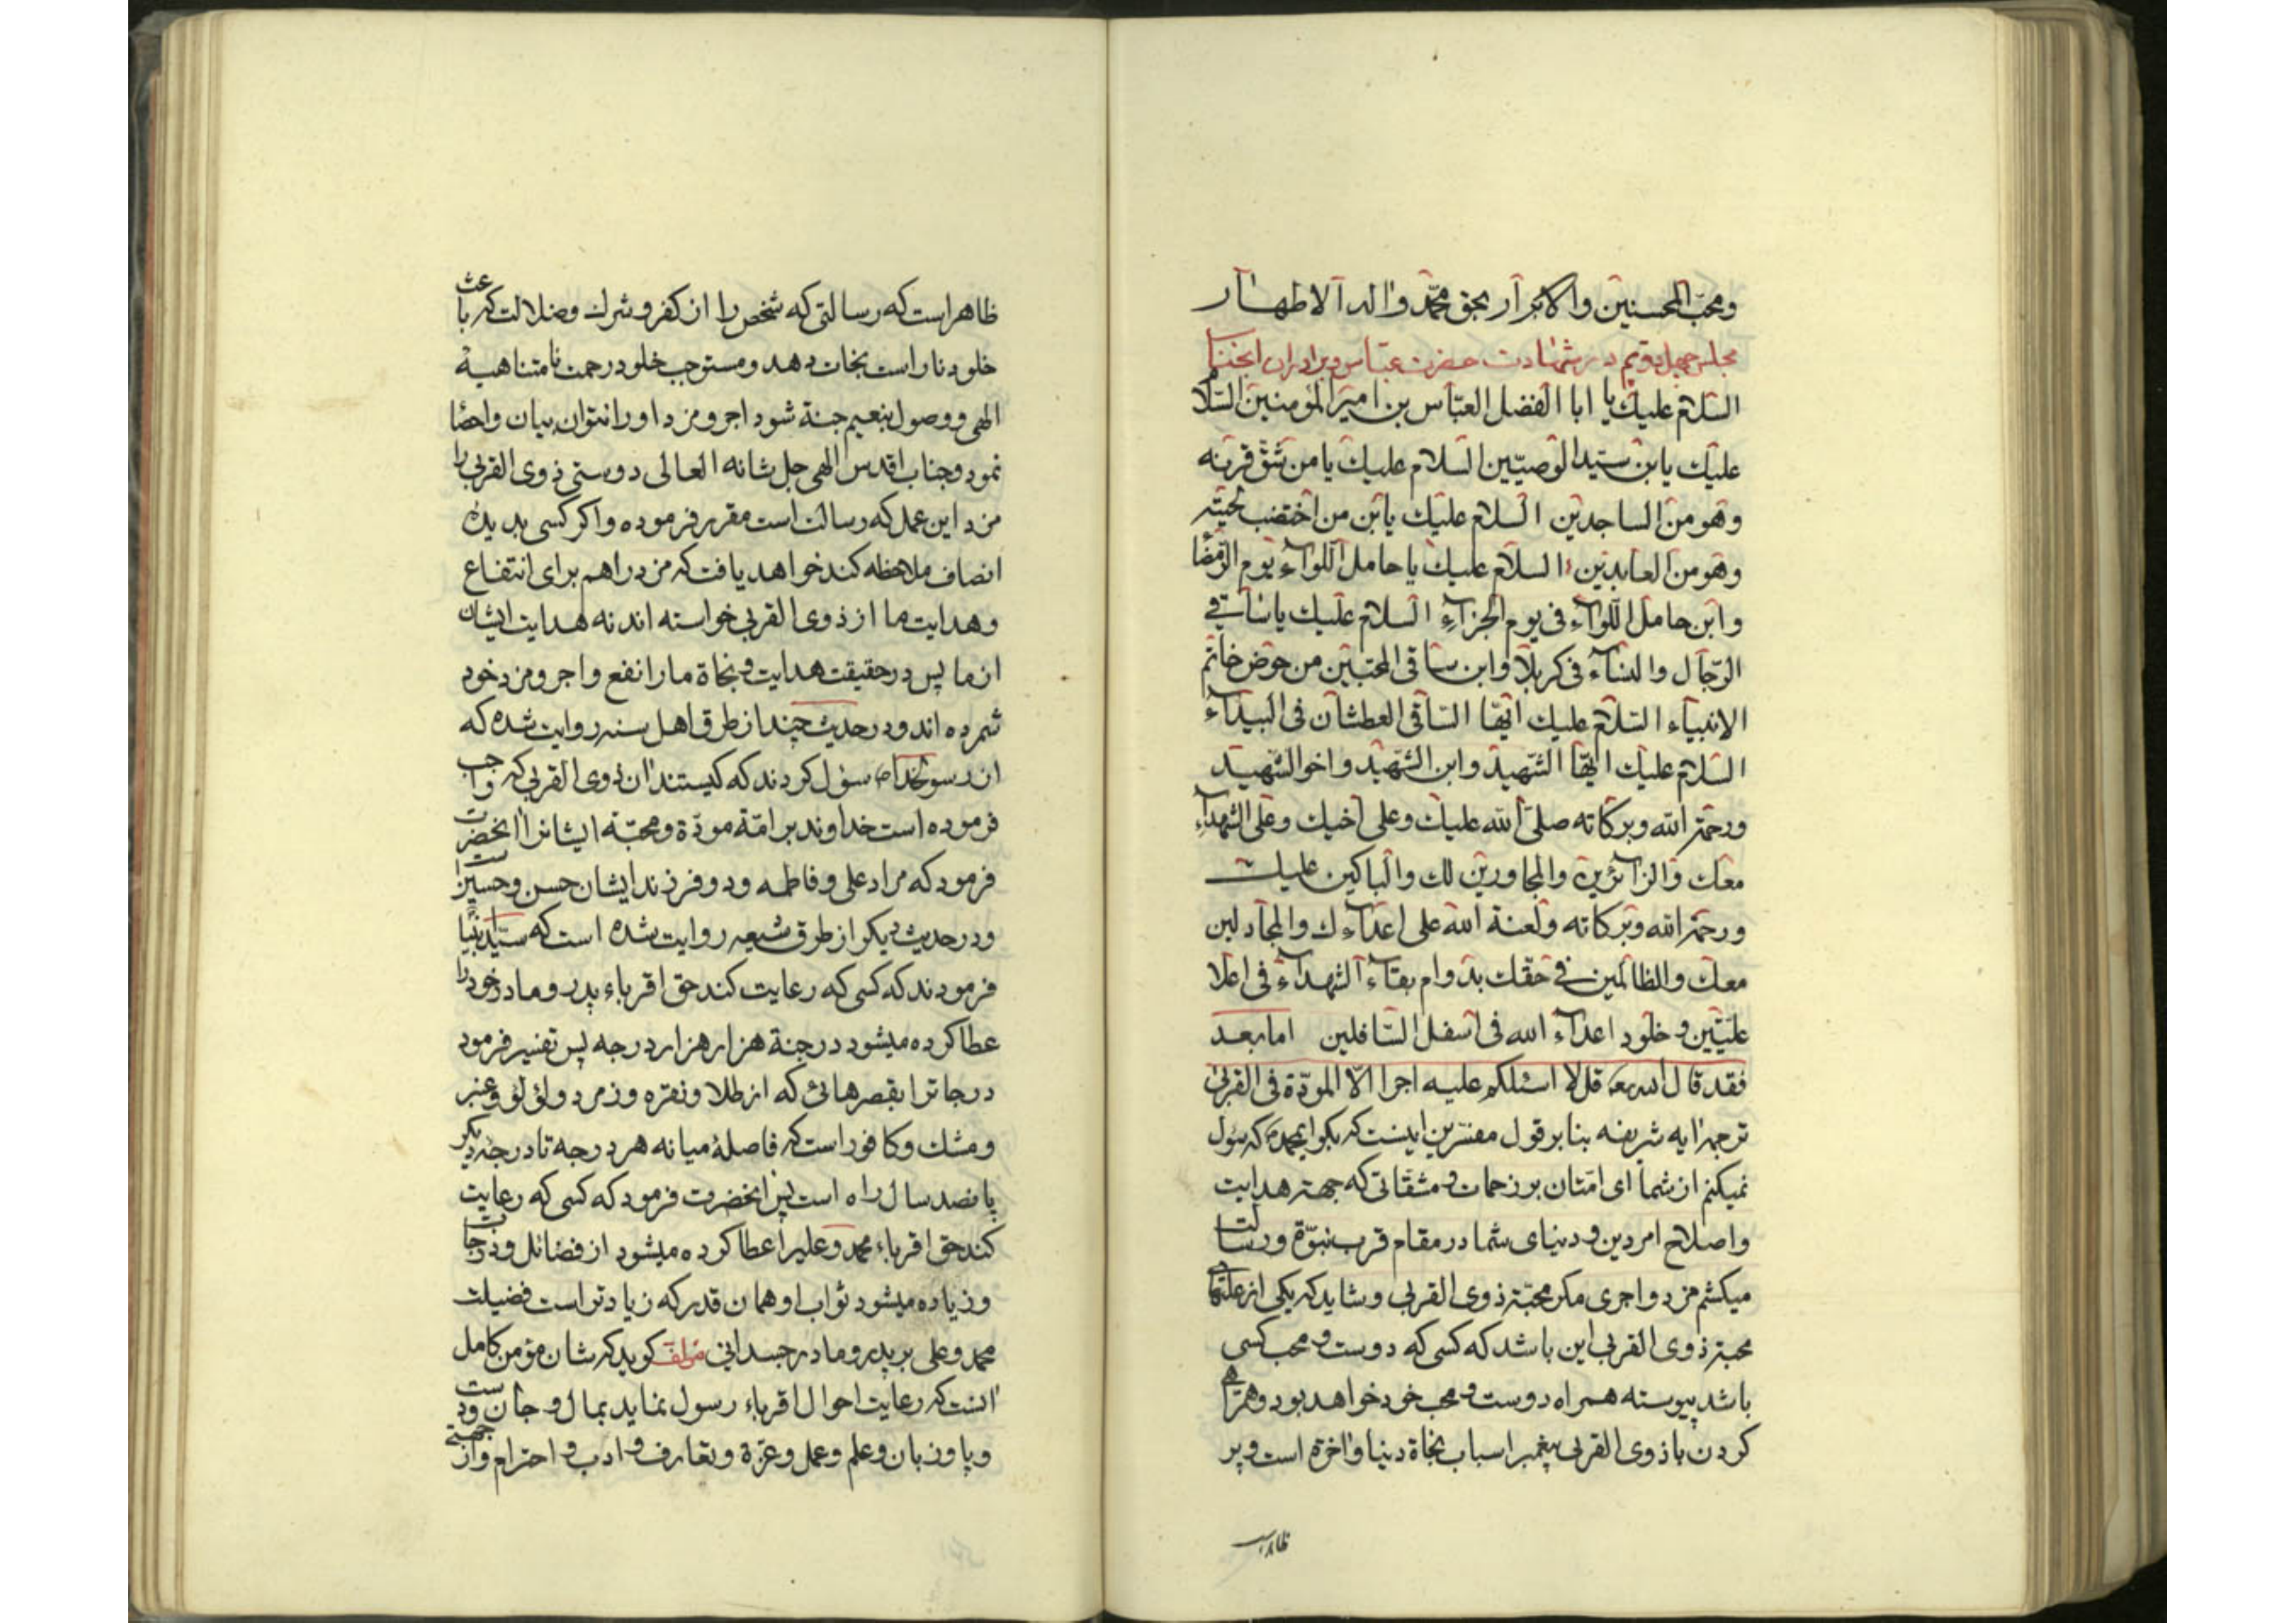 ومحبّ المحسنین والابرار بحق محمّد واله الاطهار
مجلس چهل ودویم در شهادت حضرت عبّاس وبرادران انجناب
السّلام علیك یا ابا الفضل العبّاس بن امیر المؤمنین السّلام
علیك یابن سیّد الوصیّین السلام علیك یا من شقّ قرنه
وهو من الساجدین السلام علیك یابن من اختضب لحیته
وهو من العابدین السلام علیك یا حامل اللّواء یوم الرّمضا
وابن حامل اللّواء فی یوم الجزاء السلام علیك یا ساقی
الرّجال والنساء فی کربلا وابن ساقی المحبّین من حوض خاتم
الانبیاء السّلام علیك ایّها السّاقی العطشان فی البیداء
السّلام علیك ایّها الشّهید وابن الشّهید واخو الشّهید
ورحمة الله وبرکاته صلّی الله علیك وعلی اخیك وعلی الشهداء
معك والزائرین والمجاورین لك والباکین علیك
ورحمة الله وبرکاته ولعنة الله علی اعداءك والمجادلین
معك والظالمین فی حقّك بدوام بقاء الشهداء فی اعلا
علیّین وخلود اعداء الله فی اسفل السّافلین اما بعد
فقد قال الله تعه قل لا اسئلکم علیه اجرا الّا المودّة فی القربی
ترجمه ایه شریفه بنابر قول مفسّرین اینست که بگو ایمحمد که سؤل
نمیکنم از شما ای امّتان بر زحمات و مشقّاتی که جهة هدایت
واصلاح امر دین و دنیای شما در مقام قرب نبوّة ورسالت
میکشم مزد واجری مکر محبّة ذوی القربی وشاید که یکی از علّتهای
محبة ذوی القربی این باشد که کسی که دوست و محب کسی
باشد پیوسته همراه دوست و محب خود خواهد بود وهمراهی
کردن با ذوی القربی پیغمبر اسباب نجاة دنیا واخرة است وپر
ظاهر
ظاهر است که رسالتی که شخص را از کفر وشرك وضلالت که باعث
خلود نار است نجات دهد ومستوجب خلود رحمت نامتناهیة
الهی ووصول بنعیم جنة شود اجر ومزد او را نتوان بیان واحصا
نمود وجناب اقدس الهی جل شانه العالی دوستی ذوی القربی را
مزد این عمل که رسالت است مقرر فرموده واکر کسی بدیدهٔ
انصاف ملاحظه کند خواهد یافت که مزد را هم برای انتفاع
وهدایت ما از ذوی القربی خواسته اند نه هدایت ایشان
از ما پس در حقیقت هدایت و نجاة ما را نفع واجر ومزد خود
شمرده اند ودر حدیث چند از طرق اهل سنه روایت شده که
از رسولخدا ص سؤل کردند که کیستند ان ذوی القربی که واجب
فرموده است خداوند بر امّة مودّة ومحبّة ایشانرا انحضرت
فرمود که مراد علی وفاطمه ودو فرزند ایشان حسن وحسین است
ودر حدیث دیکر از طرق شیعه روایت شده است که سیّد انبیا
فرمودند که کسی که رعایت کند حق اقرباء پدر ومادر خود را
عطا کرده میشود در جنة هزار هزار درجه پس تفسیر فرمود
درجاترا بقصرهائی که از طلا ونقره وزمرد ولؤلؤ وعنبر
ومشك وکافور است که فاصلهٔ میانه هر درجه تا درجهٔ دیکر
پانصد سال راه است پس انحضرت فرمود که کسی که رعایت
کند حق اقرباء محمد وعلیرا عطا کرده میشود از فضائل ودرجات
وزیاده میشود ثواب او همان قدر که زیادتر است فضیلت
محمد وعلی بر پدر ومادر جسدانی مؤلف کوید که شان مؤمن کامل
انست که رعایت احوال اقرباء رسول نماید بمال و جان ودست
وپا وزبان وعلم وعمل وعزة وتعارف و ادب و احترام واز جهتی